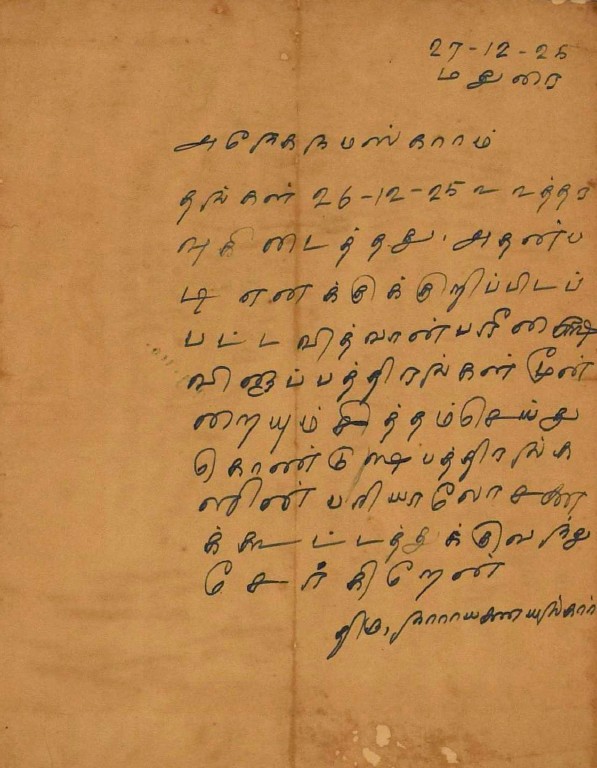 27-12-25
மதுரை
அநேகநமஸ்காரம்
தங்கள் 26-12-25 உ உத்தர
வுகிடைத்தது. அதன்ப
டி எனக்குக்குறிப்பிடப்
பட்ட வித்வான்பரீக்ஷை
விஞாப்பத்திரங்கள் மூன்
றையும் சித்தம்செய்து
கொண்டு ஷை பத்திரங்க
ளின் பரியாலோசனை
க்கூட்டத்துக்குவந்து
சேர்கிறேன்
திரு. நாராயணையங்கார்